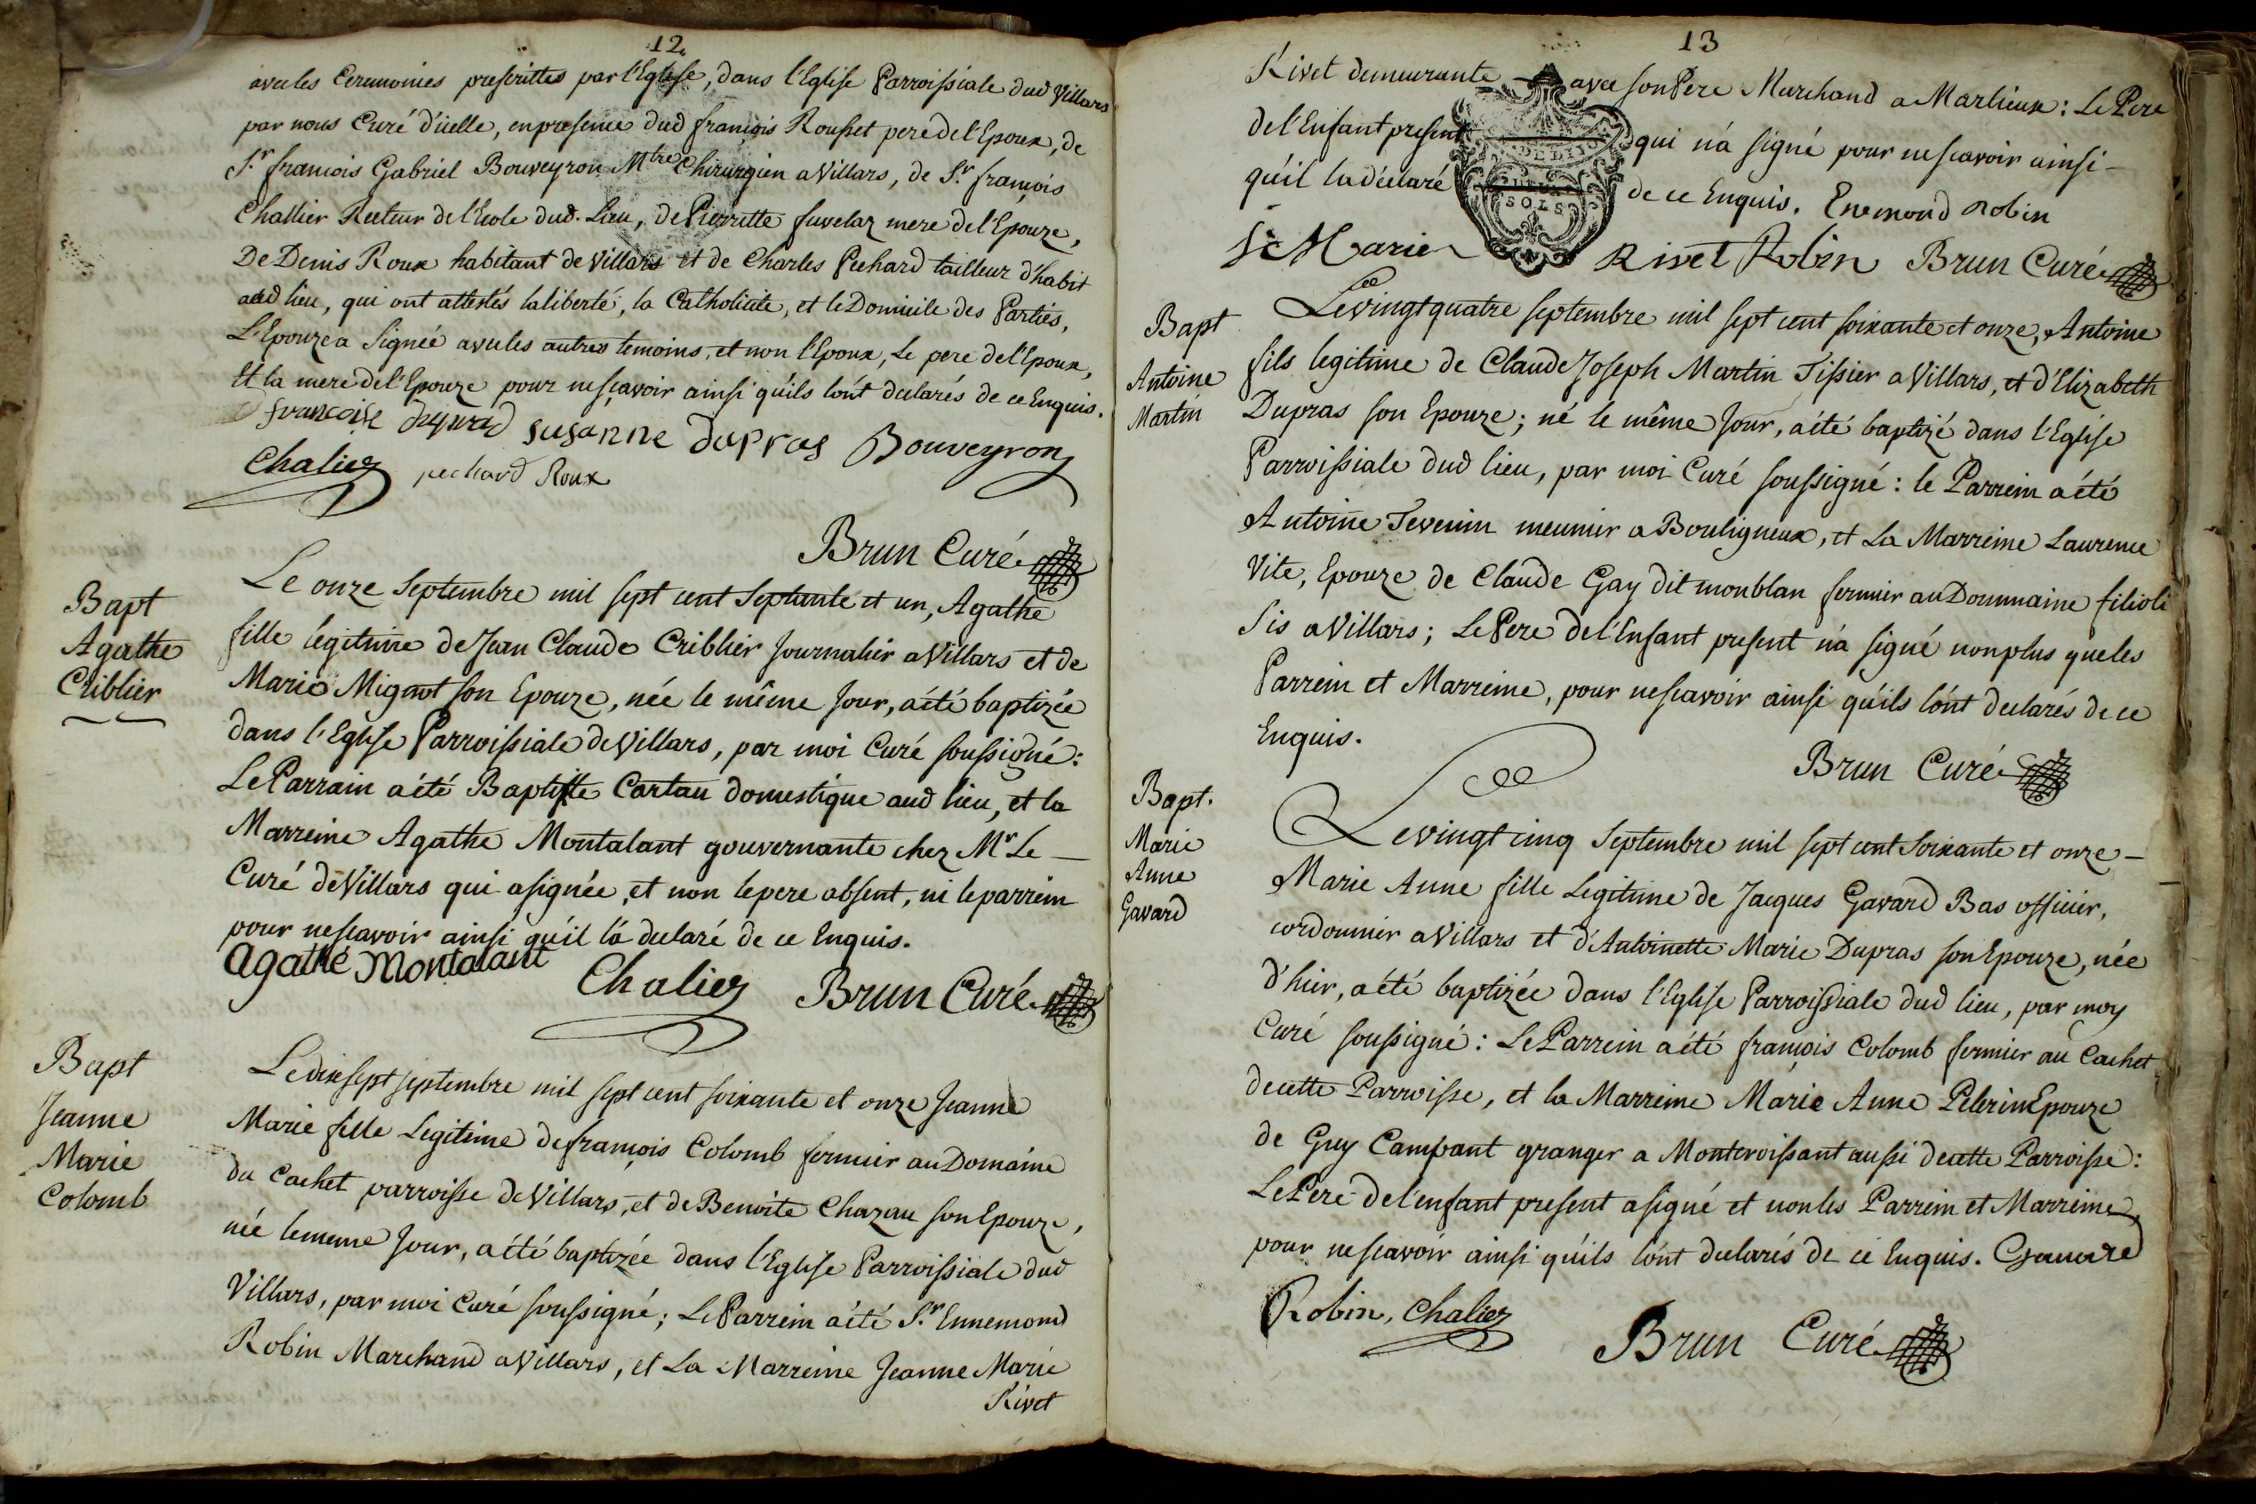 12
avec les Ceremonies prescrittes par l'Eglise, dans l'Eglise Parroissiale dud Villars
par nous Curé d'icelle, en presence dud françois Rousset pere de l'Epoux, de
S.r françois Gabriel Bouveyron M.tre Chirurgien a Villars, de S.r françois
Challier Recteur de l'Ecole dud. Lieu, de Pierrette fuvelaz mere de l'Epouze,
De Denis Roux habitant de Villars et de Charles Pechard tailleur d'habit
aud lieu, qui ont attestés la liberté, la Catholicité, et le Domicile des Parties,
L'Epouze a Signée avec les autres temoins, et non l'Epoux, Le pere de l'Epoux,
Et la mere de l'Epouze pour ne scavoir ainsi qu'ils l'ont declarés de ce Enquis.
francoise susanne dupras Bouveyron
Chaliez pechard Roux
Brun Curé
Bapt
Agathe
Criblier
Le onze Septembre mil sept cent Septante et un, Agathe
fille légitime de Jean Claude Criblier Journalier a Villars et de
Marie Mignot son Epouze, née le même Jour, a été baptizée
dans l'Eglise Parroissiale de Villars, par moi Curé soussigné:
Le Parrain a été Baptiste Cartau domestique aud lieu, et la
Marreine Agathe Montalant gouvernante chez M.r Le —
Curé de Villars qui a signée, et non le pere absent, ni le parrein
pour ne scavoir ainsi qu'il l'a declaré de ce Enquis.
agathe Montalant Chaliez Brun Curé
Bapt
Jeanne
Marie
Colomb
Le dix sept septembre mil sept cent soixante et onze Jeanne
Marie fille Legitime de françois Colomb fermier au Domaine
du Cachet parroisse de Villars, et de Benoite Chazau son Epouze,
née le meme Jour, a été baptizée dans l'Eglise Parroissiale dud
Villars, par moi Curé soussigné; Le Parrein a été S.r Ennemond
Robin Marchand a Villars, et La Marreine Jeanne Marie
Rivet
13
Rivet demeurante avec son Pere Marchand a Marlieux: Le Pere
de l'Enfant present qui n'a signé pour ne scavoir ainsi —
qu'il l'a déclaré de ce Enquis. Enemond Robin
SOLS
Marie Rivet Robin Brun Curé
Bapt
Antoine
Martin
Le vingt quatre septembre mil sept cent soixante et onze, Antoine
fils legitime de Claude Joseph Martin Tissier a Villars, et d'Elizabeth
Dupras son Epouze; né le même Jour, a été baptizé dans l'Eglise
Parroissiale dud lieu, par moi Curé soussigné: le Parrein a été
Antoine Tevenin meunier a Bouligneux, et La Marreine Laurence
Vite, Epouze de Claude Gay dit monblan fermier au Doumaine filioli
Sis a Villars; Le Pere de l'Enfant present n'a signé non plus que les
Parrein et Marreine, pour ne scavoir ainsi qu'ils l'ont declarés de ce
Enquis.
Brun Curé
Bapt.
Marie
Anne
Gavard
Le vingt cinq Septembre mil sept cent Soixante et onze —
Marie Anne fille Legitime de Jacques Gavard Bas officier,
cordonnier a Villars et d'Antoinette Marie Dupras son Epouze, née
d'hier, a été baptizée dans l'Eglise Parroissiale dud lieu, par moy
Curé soussigné: Le Parrein a été françois Colomb fermier au Cachet
de cette Parroisse, et la Marreine Marie Anne Pelerin Epouze
de Guy Campant granger a Montcroissant aussi de cette Parroisse:
Le Pere de l'enfant present a signé et non les Parrein et Marreine,
pour ne scavoir ainsi qu'ils l'ont declarés de ce Enquis. Gavard
Robin, Chaliez
Brun Curé